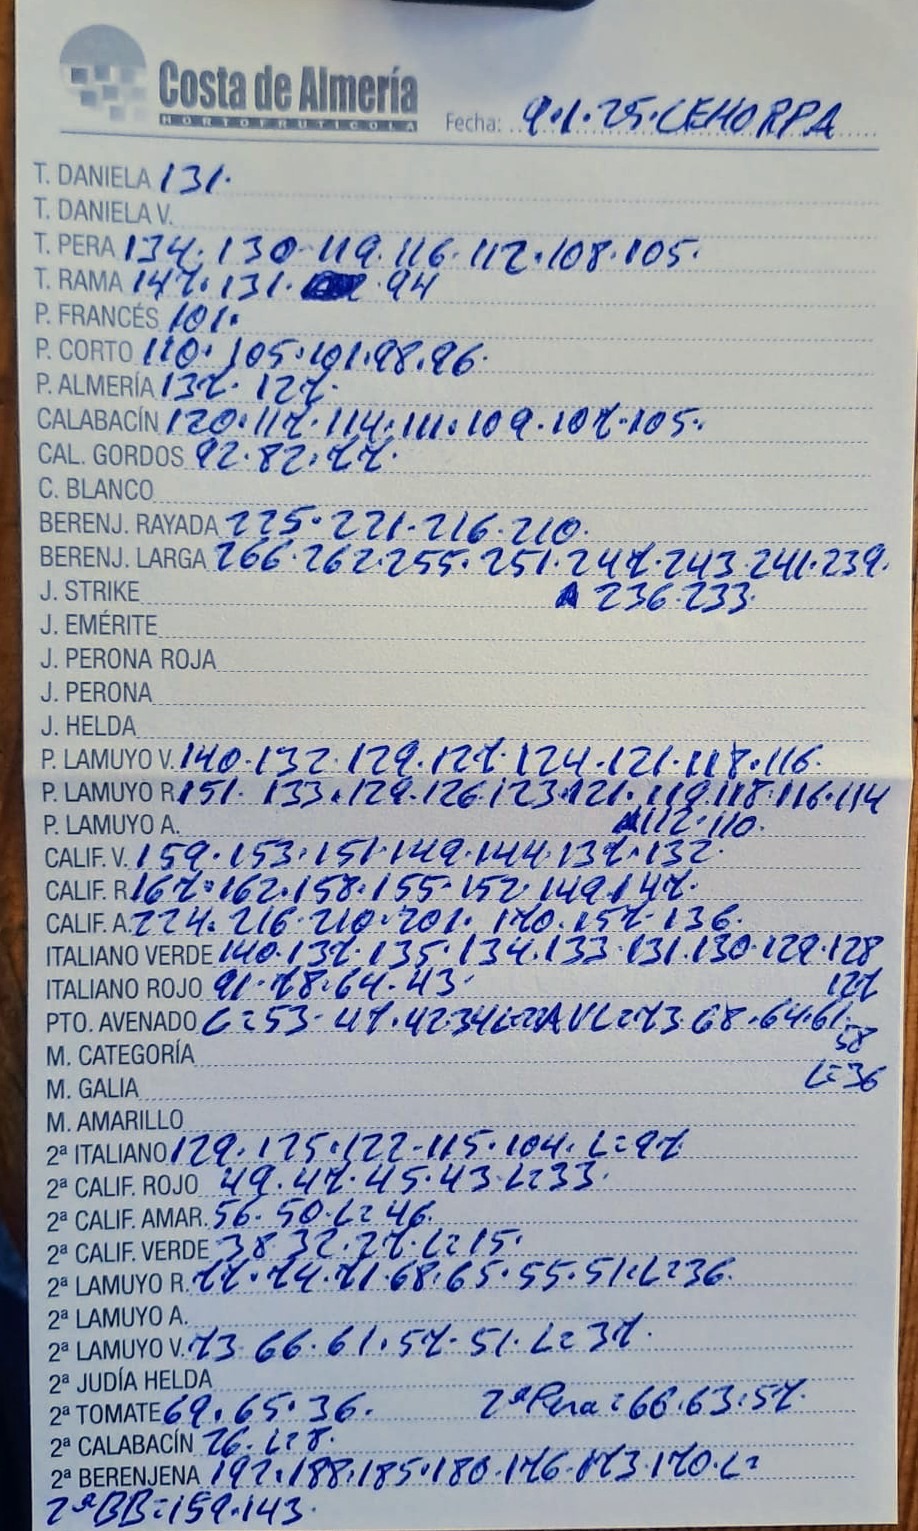 Costa de Almería
HORTOFRUTICOLA
Fecha: 9.1.25.CEHORPA
T. DANIELA 131.
T. DANIELA V.
T. PERA 134.130.119.116.112.108.105.
T. RAMA 147.131. 94
P. FRANCÉS 101.
P. CORTO 110.105.101.98.96.
P. ALMERÍA 137.127.
CALABACÍN 120.117.114.111.109.107.105.
CAL. GORDOS 92.82.77.
C. BLANCO
BERENJ. RAYADA 225.221.216.210.
BERENJ. LARGA 266.262.255.251.247.243.241.239.
J. STRIKE 236.233.
J. EMÉRITE
J. PERONA ROJA
J. PERONA
J. HELDA
P. LAMUYO V. 140.132.129.127.124.121.118.116.
P. LAMUYO R. 151.133.129.126.123.121.119.118.116.114
P. LAMUYO A. 112.110.
CALIF. V. 159.153.151.149.144.137.132.
CALIF. R. 167.162.158.155.152.149.147.
CALIF. A. 224.216.210.201.170.157.136.
ITALIANO VERDE 140.137.135.134.133.131.130.129.128
ITALIANO ROJO 91.78.64.43. 127
PTO. AVENADO C=53.47.42.34 L= AVL=73.68.64.61.
58
M. CATEGORÍA
L=36
M. GALIA
M. AMARILLO
2ª ITALIANO 129.125.122.115.104.L=97
2ª CALIF. ROJO 49.47.45.43.L=33.
2ª CALIF. AMAR. 56.50.L=46.
2ª CALIF. VERDE 38.32.27.L=15.
2ª LAMUYO R. 77.74.71.68.65.55.51.L=36.
2ª LAMUYO A.
2ª LAMUYO V. 73.66.61.57.51.L=37.
2ª JUDÍA HELDA
2ª TOMATE 69.65.36. 2ªPera=66.63.57.
2ª CALABACÍN 26.L=8.
2ª BERENJENA 192.188.185.180.176.173.170.L=
2ªBB=159.143.